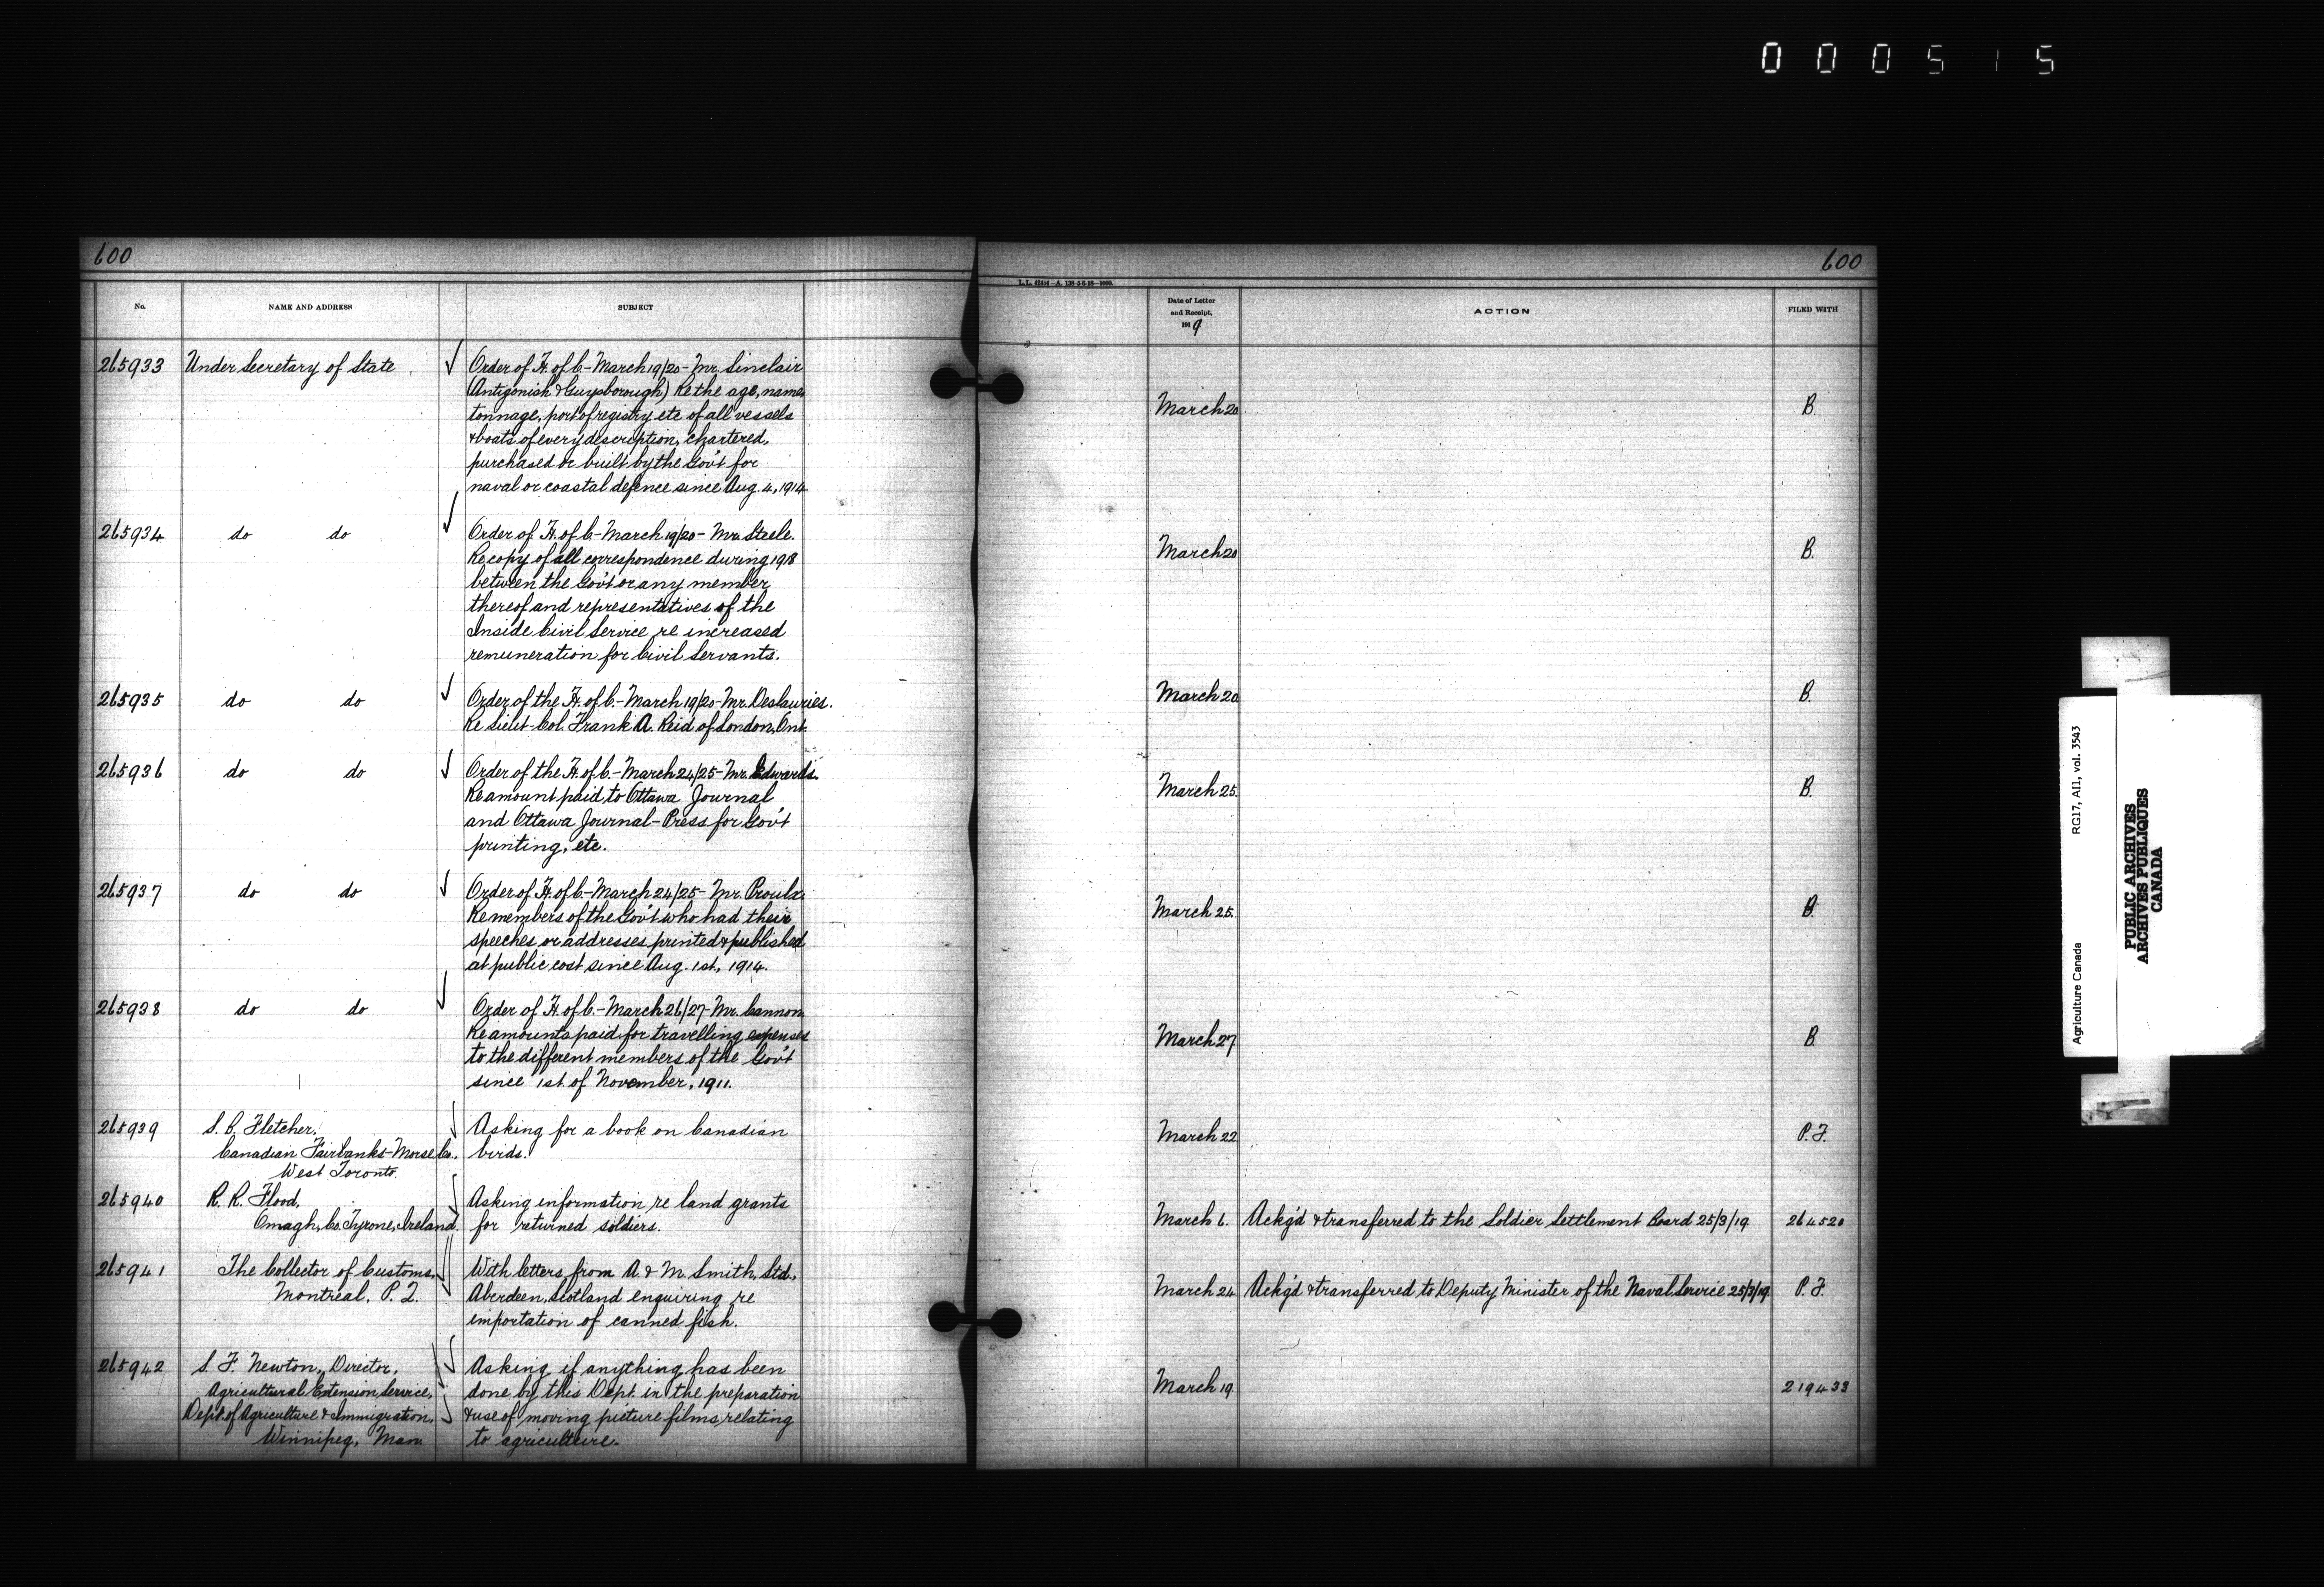 000515
600
No.
NAME AND ADDRESS
SUBJECT
265933 Under Secretary of State
Order of H. of C.-March 19/20-Mr. Sinclair
(Antigonish & Guysborough) Re the age, name,
tonnage, port of registry etc of all vessels
& boats of every description, chartered,
purchased or built by the Gov't for
naval or coastal defence since Aug. 4, 1914.
265934 do do
Order of H. of C-March 19/20-Mr. Steele.
Re copy of all correspondence during 1918
between the Gov't or any member
thereof and representatives of the
Inside Civil Service re increased
remuneration for Civil Servants.
265935 do do
Order of the H. of C.-March 19/20-Mr. Deslauries.
Re Lieut-Col. Frank A. Reid of London, Ont.
265936 do do
Order of the H. of C.-March 24/25-Mr. Edwards.
Re amount paid to Ottawa Journal
and Ottawa Journal-Press for Gov't
printing, etc.
265937 do do
Order of H. of C-March 24/25-Mr. Proulx.
Re members of the Gov't who had their
speeches or addresses printed & published
at public cost since Aug. 1st, 1914.
265938 do do
Order of H. of C.-March 26/27-Mr. Cannon.
Re amounts paid for travelling expenses
to the different members of the Gov't
since 1st of November, 1911.
265939 S. C. Fletcher,
Canadian Fairbanks-Morse Co.,
West Toronto.
Asking for a book on Canadian
birds.
265940 R. R. Flood,
Omagh, Co. Tyrone, Ireland.
Asking information re land grants
for returned soldiers.
265941 The Collector of Customs,
Montreal, P. Q.
With letters from A. & M. Smith, Ltd.,
Aberdeen, Scotland enquiring re
importation of canned fish.
265942 S. F. Newton, Director,
Agricultural Extension Service,
Dept. of Agriculture & Immigration,
Winnipeg, Man
Asking if anything has been
done by this Dept. in the preparation
& use of moving picture films relating
to agriculture.
600
Date of Letter
and Receipt,
1919
ACTION
FILED WITH
March 20 B.
March 20 B.
March 20 B.
March 25 B.
March 25 B.
March 27 B.
March 22 P. F.
March 6. Ackg'd & transferred to the Soldier Settlement Board 25/3/19. 264520
March 24 Ackg'd & transferred to Deputy Minister of the Naval Service 25/3/19. P. F.
March 19 219433
Agriculture Canada RG17, AII, vol. 3543
PUBLIC ARCHIVES
ARCHIVES PUBLIQUES
CANADA